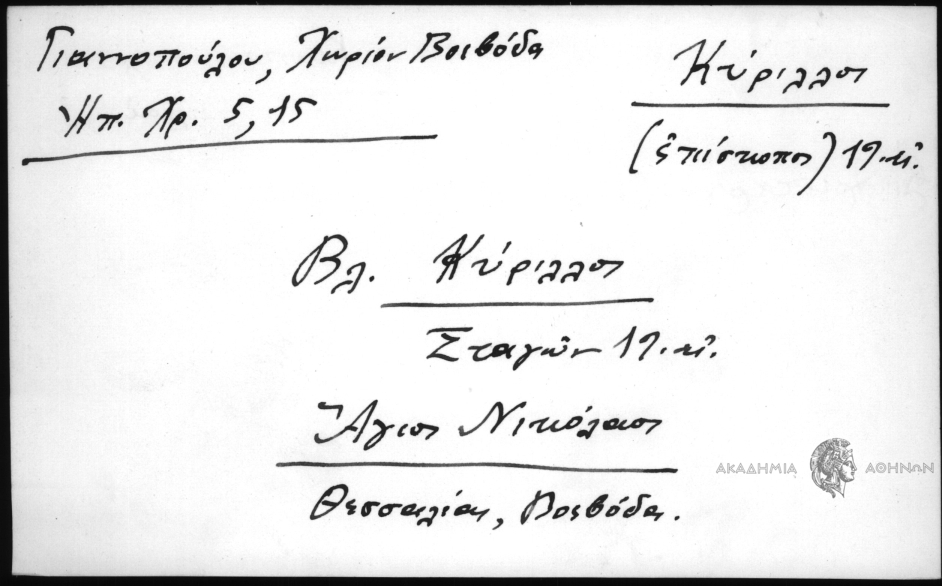 Γιαννοπούλου, Χωρίον Βοεβόδα
Ἠπ. Χρ. 5, 15
Κύριλλος
(ἐπίσκοπος) 19. αἰ.
Βλ. Κύριλλος
Σταγῶν 19. αἰ.
Ἅγιος Νικόλαος
Θεσσαλίας, Βοεβόδα.
ΑΚΑΔΗΜΙΑ ΑΘΗΝΩΝ